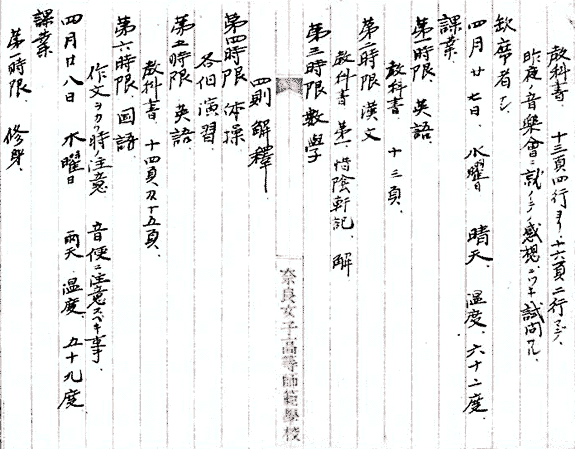 教科書、十三頁四行ヨリ、十六頁二行マデ、
昨夜ノ音樂會ニ就ノ感想ニツキ試問アル、
欠席者ナシ
四月廿七日、水曜日 晴天、温度、六十二度、
課業、
第一時限、英語
教科書、十三頁、
第二時限 漢文
教科書 第一 惜陰軒記、解
第三時限 數學
四則解釋
奈良女子高等師範學校
第四時限 体操
各個演習、
第五時限 英語
教科書、十四頁及十五頁、
第六時限 国語、
作文ヲカク時ノ注意 音便ニ注意スベキ事、
四月廿八日 木曜日 雨天、温度、五十九度
課業
第一時限、修身、